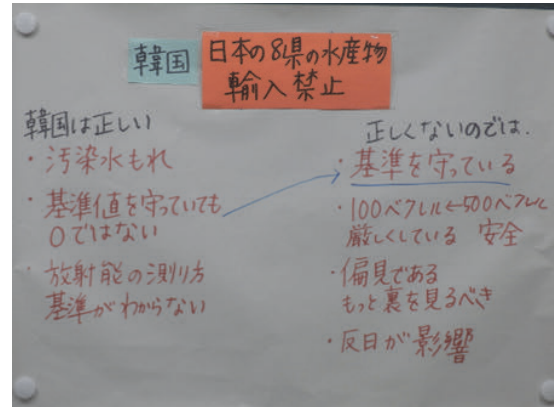 韓国
日本の8県の水産物
輸入禁止
韓国は正しい
・汚染水もれ
・基準値を守っていても
0ではない
・放射能の測り方
基準がわからない
正しくないのでは.
・基準を守っている
・100ベクレル←500ベクレル
厳しくしている 安全
・偏見である
もっと裏を見るべき
・反日が影響